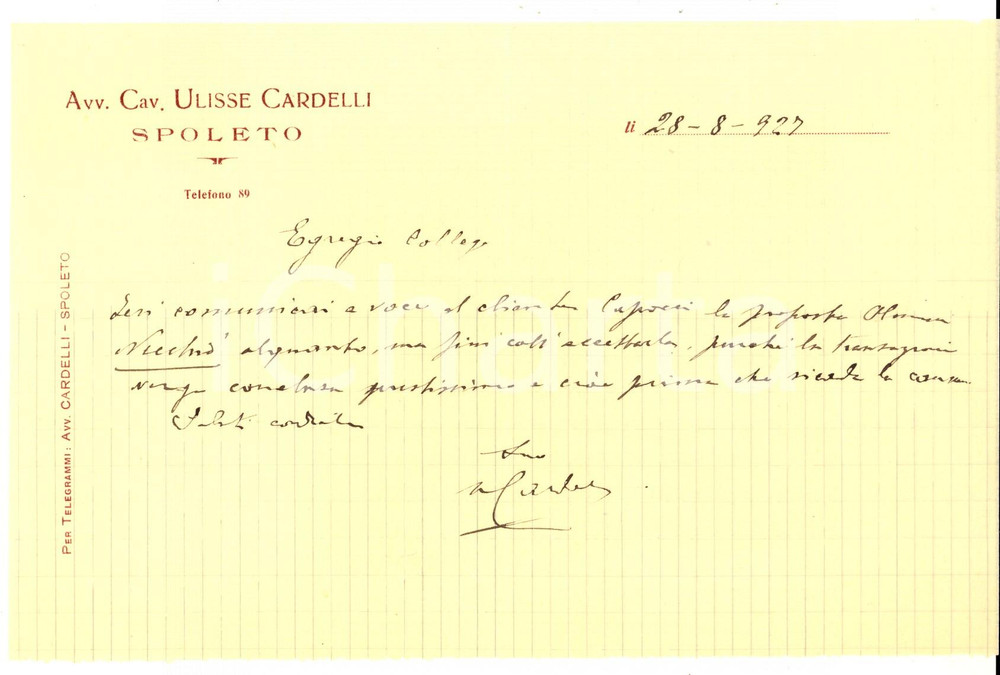 Avv. Cav. ULISSE CARDELLI
SPOLETO
Telefono 89
lì 28-8-927
PER TELEGRAMMI: AVV. CARDELLI - SPOLETO
Egregio Collega
Ieri comunicai a voce al cliente la proposta
alquanto, ma finì coll'accettarla, purché la transazione
venga conclusa prestissimo e cioè prima che la causa
Saluti cordiali
Suo
U Cardelli
iCharta